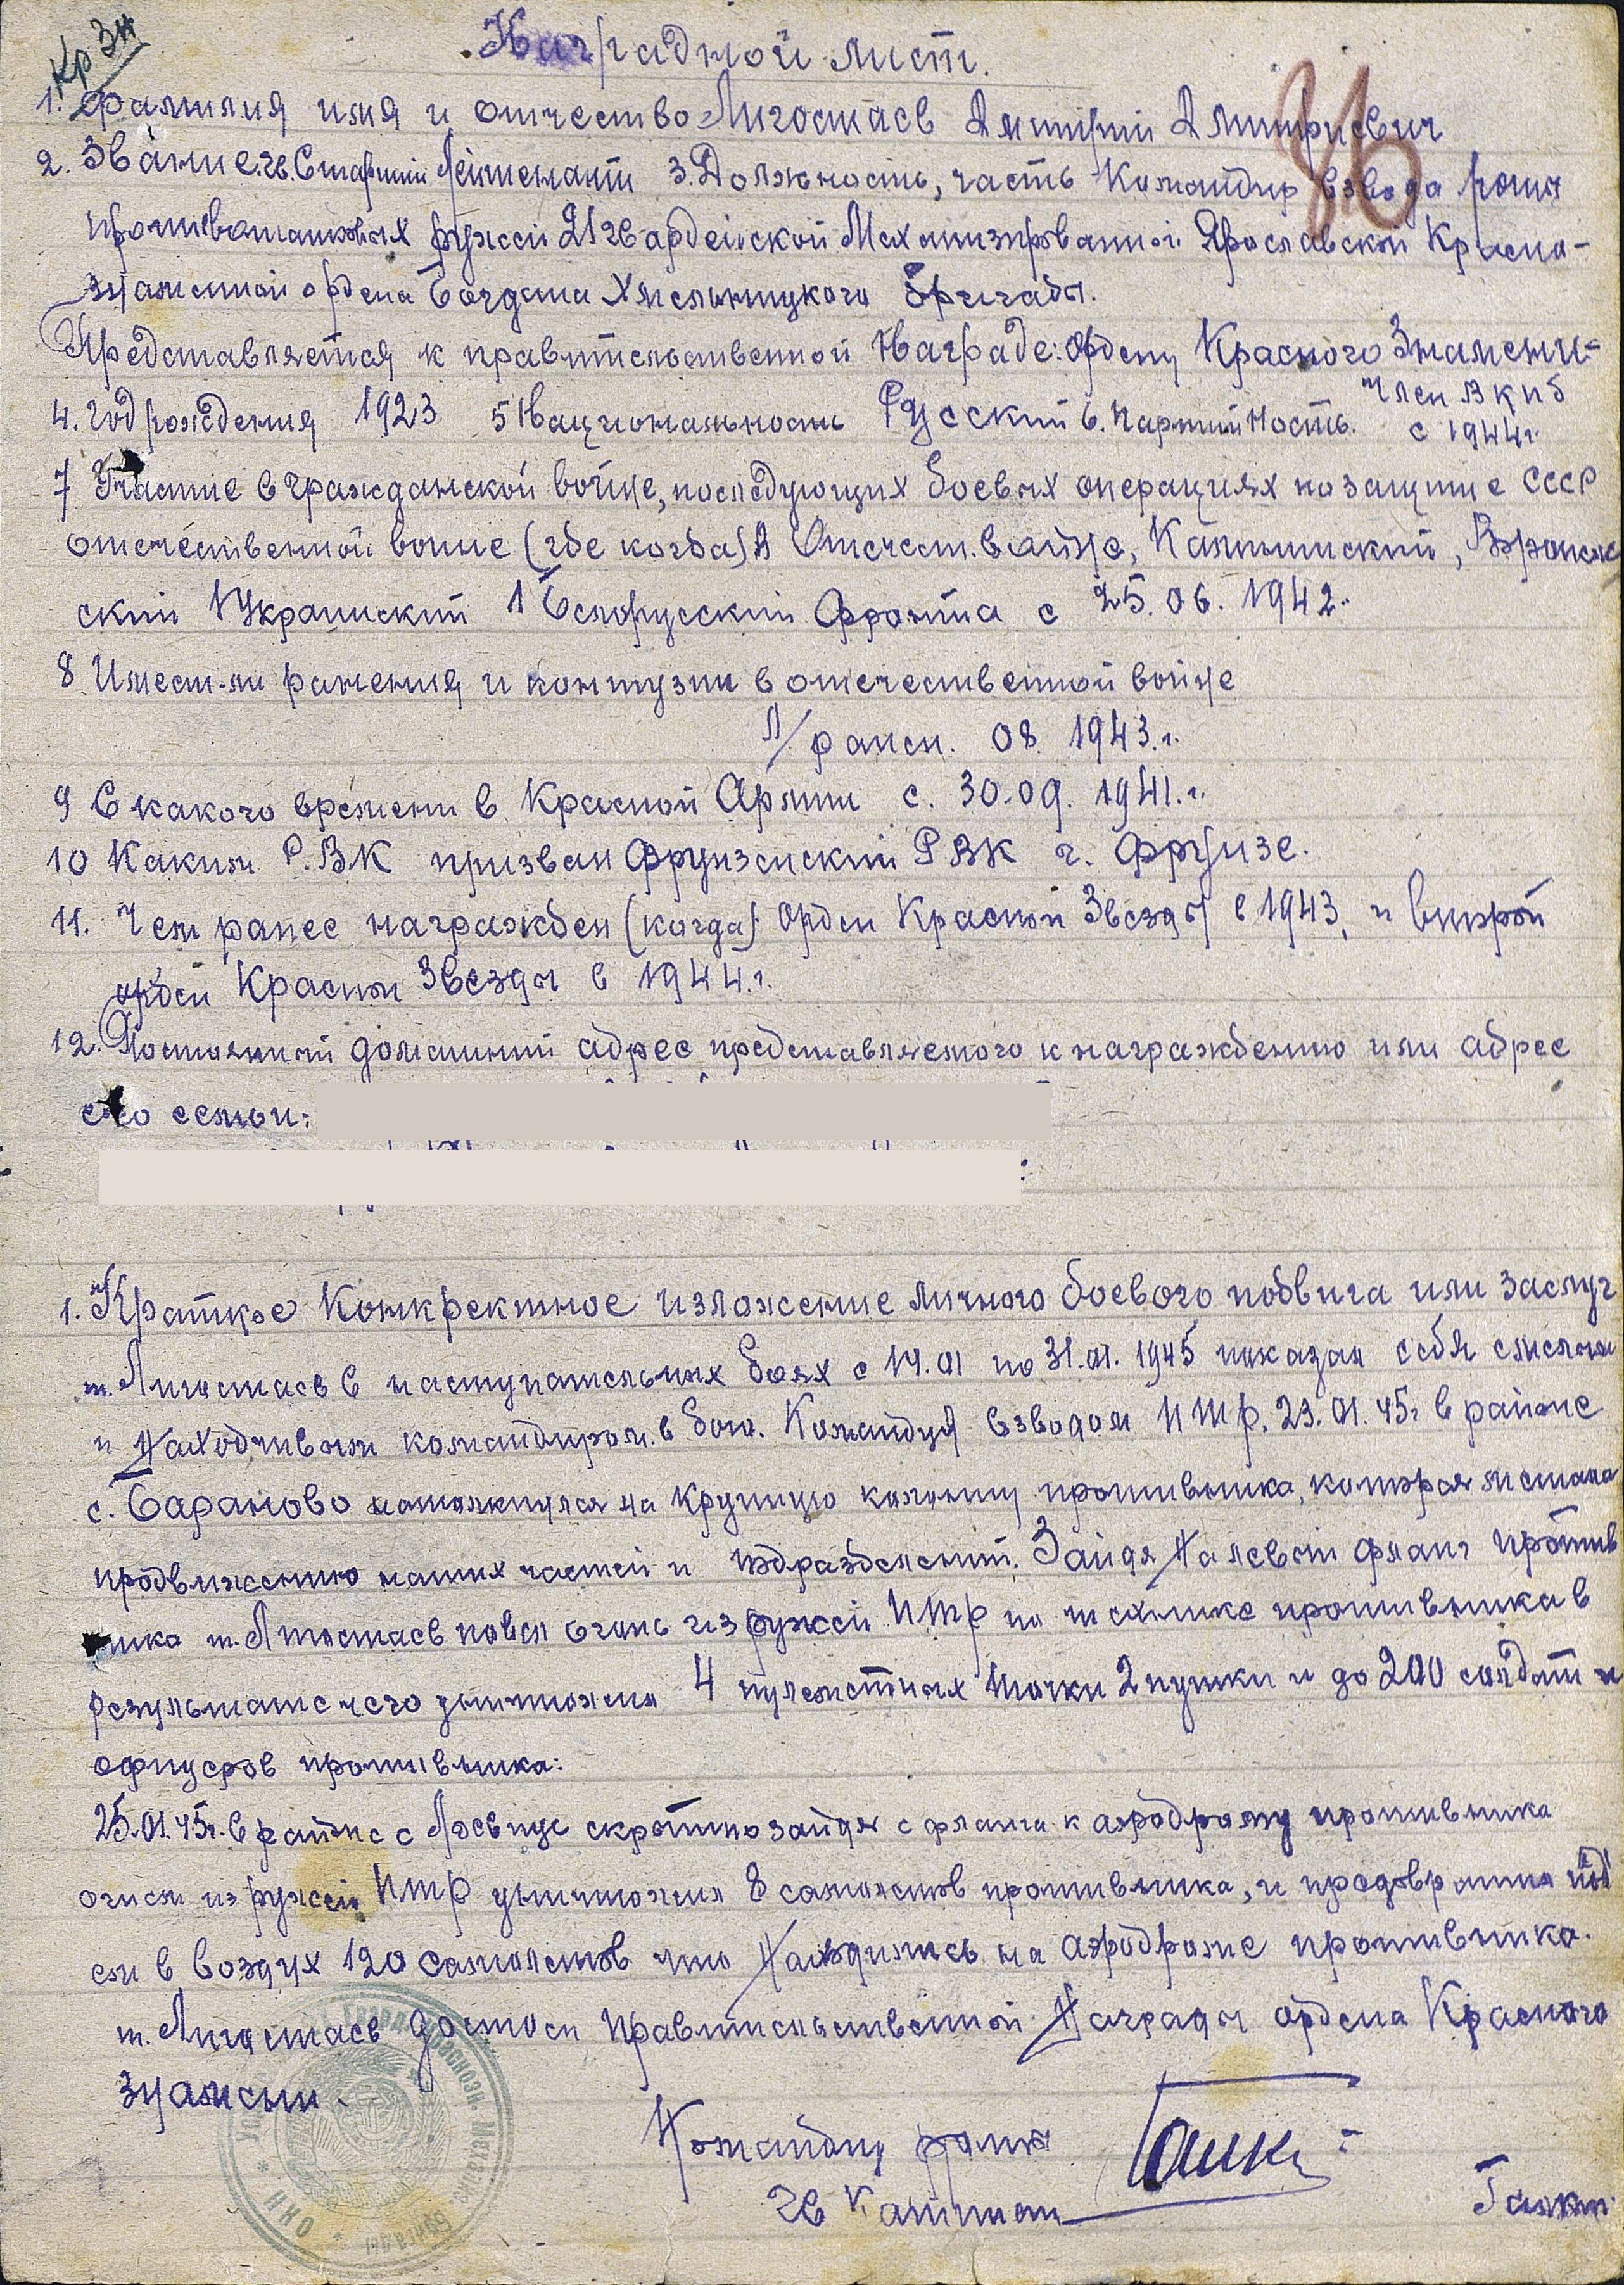 Кр Зн
Наградной лист.
1. Фамилия имя и отчество Лигостаев Дмитрий Дмитриевич
2. Звание. гв. Старший Лейтенант 3. Должность, часть Командир взвода роты
противотанковых ружей 21 гвардейской Механизированной Ярославской Красно-
знаменной ордена Богдана Хмельницкого бригады.
Представляется к правительственной Награде: Ордену Красного Знамени-
4. год рождения 1923 5 Национальность Русский 6. Партийность. Член ВКПб
с 1944г.
7 Участие в гражданской войне, последующих боевых операциях по защите СССР
отечественной войне (где когда) В Отечест. войне, Калининский, Воронеж
ский 1 Украинский 1 Белорусский Фронта с 25. 06. 1942.
8 Имеет-ли ранения и контузии в отечественной войне
Л/ранен. 08. 1943.г.
9 С какого времени в Красной Армии с. 30.09. 1941.г.
10 Каким Р.ВК призван Фрунзенский РВК г. Фрунзе.
11. Чем ранее награжден (когда) Орден Красной Звезды в 1943, и второй
орден Красной Звезды в 1944.г.
12. Постоянный домашний адрес представляемого к награждению или адрес
его семьи:
1. Краткое Конкректное изложение личного боевого подвига или заслуг
т. Лигостаев в наступательных боях с 14.01 по 31.01. 1945 показал себя смелым
и Находчивым командиром. в бою. Командуя взводом ПТР. 23.01.45г в районе
с. Бараново натолкнулся на крупную колонну противника, которая мешала
продвижению наших частей и подразделений. Зайдя На левый фланг против
ника т. Лигостаев повел огонь из ружей ПТР по технике противника в
результате чего уничтожил 4 пулеметных точки 2 пушки и до 200 солдат и
офицеров противника:
25.01.45г. в районе с скрытно зайдя с фланга к аэродрому противника
огнем из ружей ПТР уничтожил 8 самолетов противника, и предовратил
в воздух 120 самолетов что Находились на аэродроме противника.
т. Лигостаев достоен Правительственной Награды ордена Красного
Знамени.
Командир роты
Гв Капитан